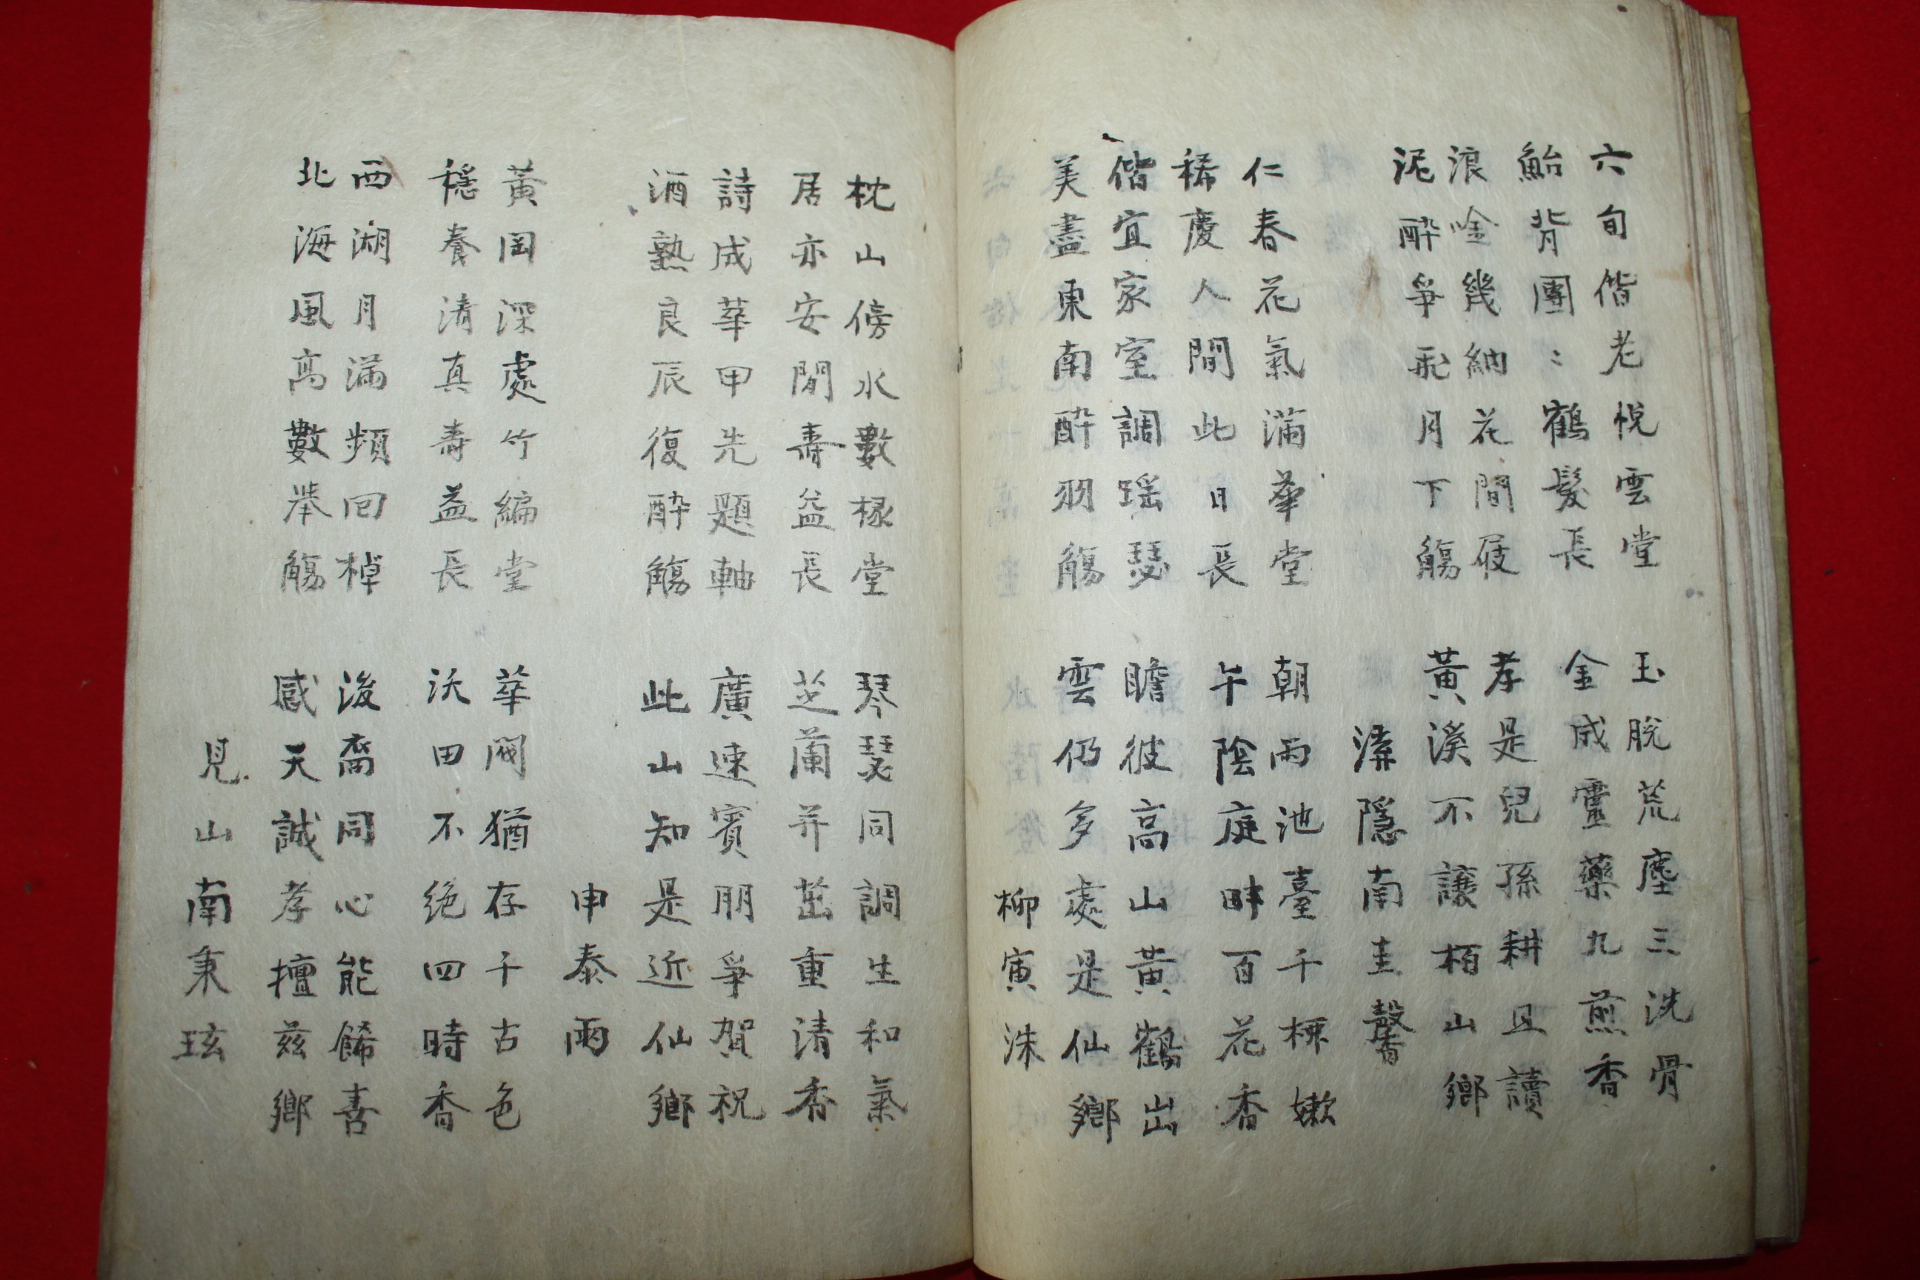 六旬偕老悅雲堂 玉脫荒塵三洗骨
鮐背團〻鶴髮長 金成靈藥九煎香
浪唫幾納花間屐 孝是兒孫耕且讀
泥醉爭飛月下觴 黃溪不讓栢山鄉
溱隱南圭馨
仁春花氣滿華堂 朝雨池臺千樑嫩
稀慶人間此日長 午陰庭畔百花香
偕宜家室調瑶瑟 瞻彼高山黃鶴出
美盡東南醉羽觴 雲仍多處是仙鄉
柳寅洙
枕山傍水數椽堂 琴瑟同調生和氣
居亦安閒壽益長 芝蘭并茁重清香
詩成華甲先題軸 廣速賓朋爭賀祝
酒熟良辰復醉觴 此山知是近仙鄉
申泰雨
黃岡深處竹編堂 華閥猶存千古色
穩養清真壽益長 沃田不絶四時香
西湖月滿頻回棹 後裔同心能餙喜
北海風高數举觴 感天誠孝擅兹鄉
見山南秉玹